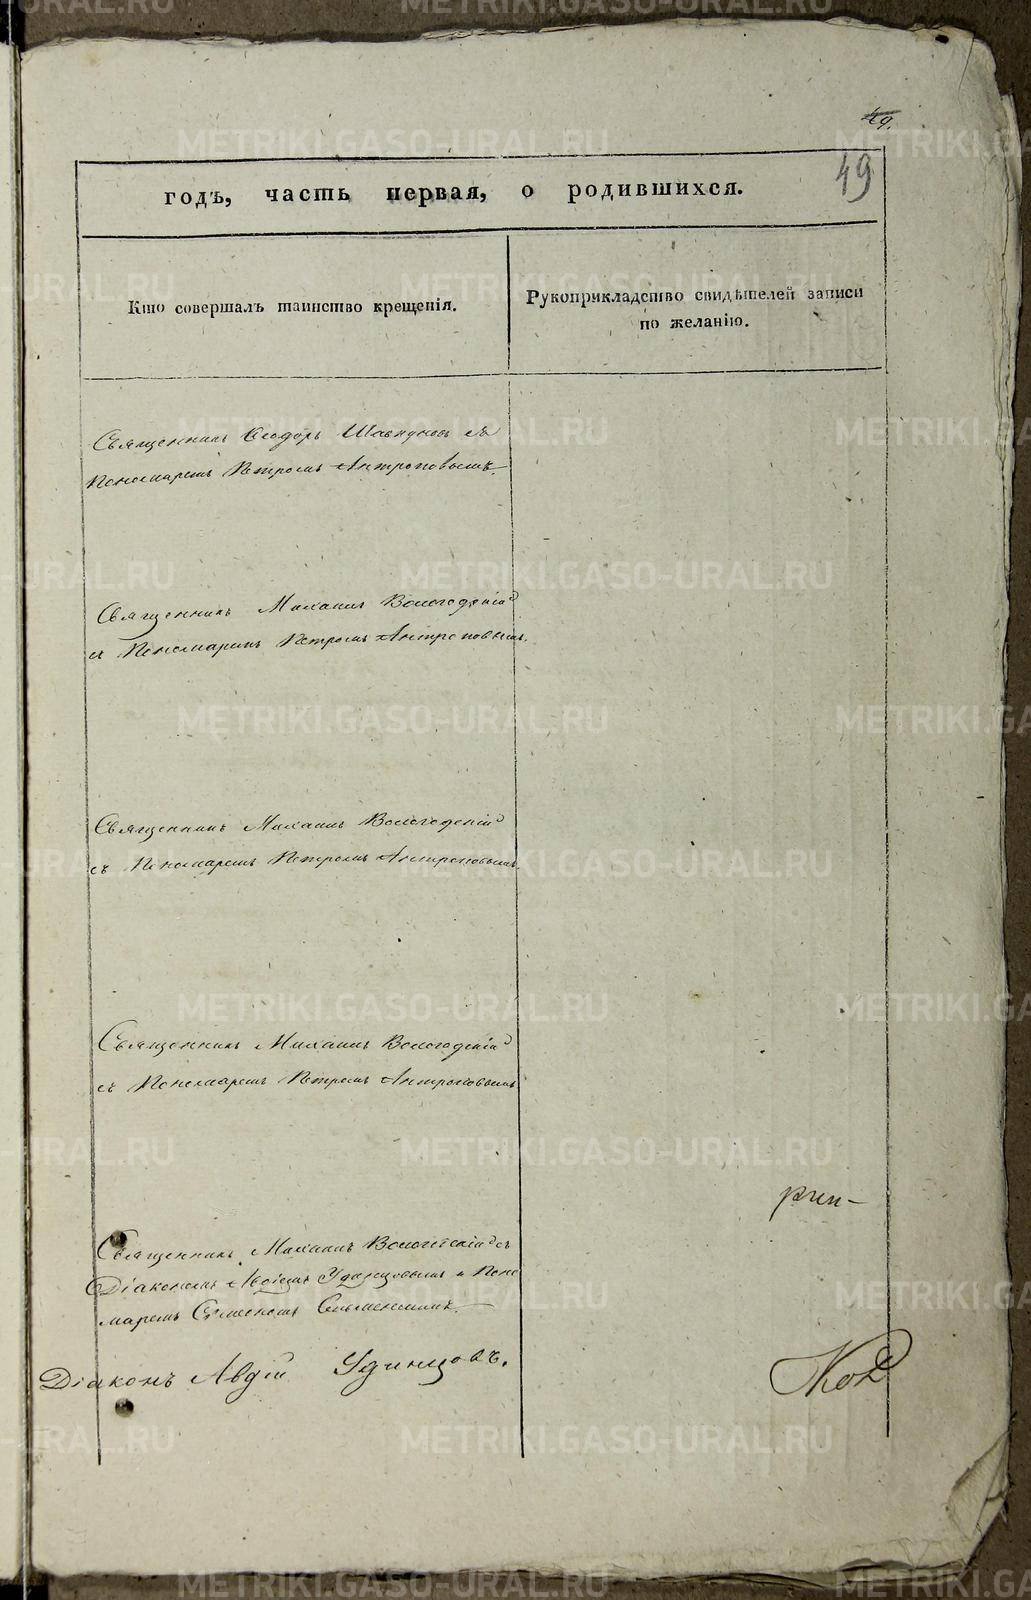 49.
49
годъ, часть первая, о родившихся.
Кто совершалъ таинство крещенія.
Рукоприкладство свидѣтелей записи
по желанію.
Священникъ Ѳеодоръ съ
Пономаремъ Петромъ Антроповымъ.
Священникъ Михаилъ Вологодскій
съ Пономаремъ Петромъ Антроповымъ.
Священникъ Михаилъ Вологодскій
съ Пономаремъ Петромъ Антроповымъ
Священникъ Михаилъ Вологодскій
съ Пономаремъ Петромъ Антроповымъ
Священникъ Михаилъ Вологотскій съ
Діакономъ Авдіемъ Удинцовымъ и Поно
маремъ
Діаконъ Авдій Удинцовъ.
METRIKI.GASO-URAL.RU